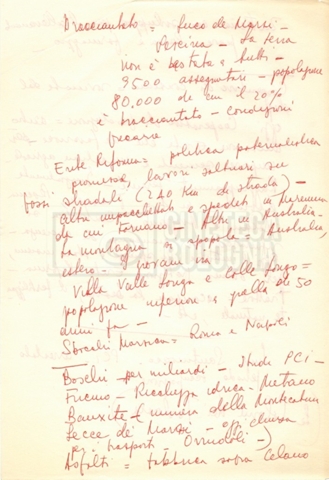 Bracciantato = fuco de Marsi -
Pescina - La terra
non è bastata a tutti -
9500 assegnatari - popolazione
80.000 di cui il 20%
è bracciantato - condizioni
precarie
Ente Riforma = politica paternalistica
promesse, lavori saltuari su
fossi stradali (240 Km di strada) -
altri impacchettati e spediti in Maremma
da cui tornano - Altri in Australia -
La montagna si spopola = Australia,
estero - I giovani via
Villa Valle Longa e Colle Longo =
popolazione inferiore a quella di 50
anni fa -
Sbocchi Marsica = Roma e Napoli
Boschi per miliardi - Studi PCI -
Fucino - Ricchezza idrica - Metano
Bauxite
Lecce de' Marsi - chiusa
trasporti Ovindoli -)
Asfalti = fabbrica sopra Celano
CINETECA
BOLOGNA